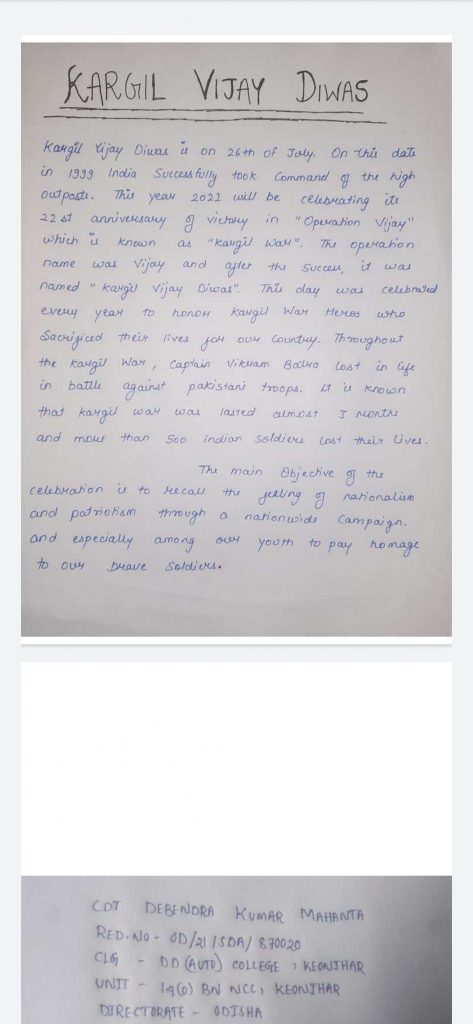 KARGIL VIJAY DIWAS
Kargil Vijay Diwas is on 26th of July. On this date
in 1999 India Successfully took Command of the high
outposts. This year 2022 will be celebrating its
22st anniversary of victory in "Operation Vijay"
which is known as "kargil War". The operation
name was Vijay and after the Success, it was
named "kargil Vijay Diwas". This day was celebrated
every year to honor kargil War Heros who
Sacrificed their lives for our Country. Throughout
the kargil War, Captain Vikram Batra lost in life
in battle against pakistani troops. It is known
that kargil war was lasted almost 3 months
and more than 500 indian Soldiers lost their lives.
The main Objective of the
celebration is to recall the feeling of nationalism
and patriotism through a nationwide Campaign.
and especially among our youth to pay homage
to our brave Soldiers.
CDT DEBENDRA KUMAR MAHANTA
RED.NO - OD/21/SDA/870020
CLG - DD (AUTO) COLLEGE, KEONJHAR
UNIT - 14(O) BN NCC, KEONJHAR
DIRECTORATE - ODISHA